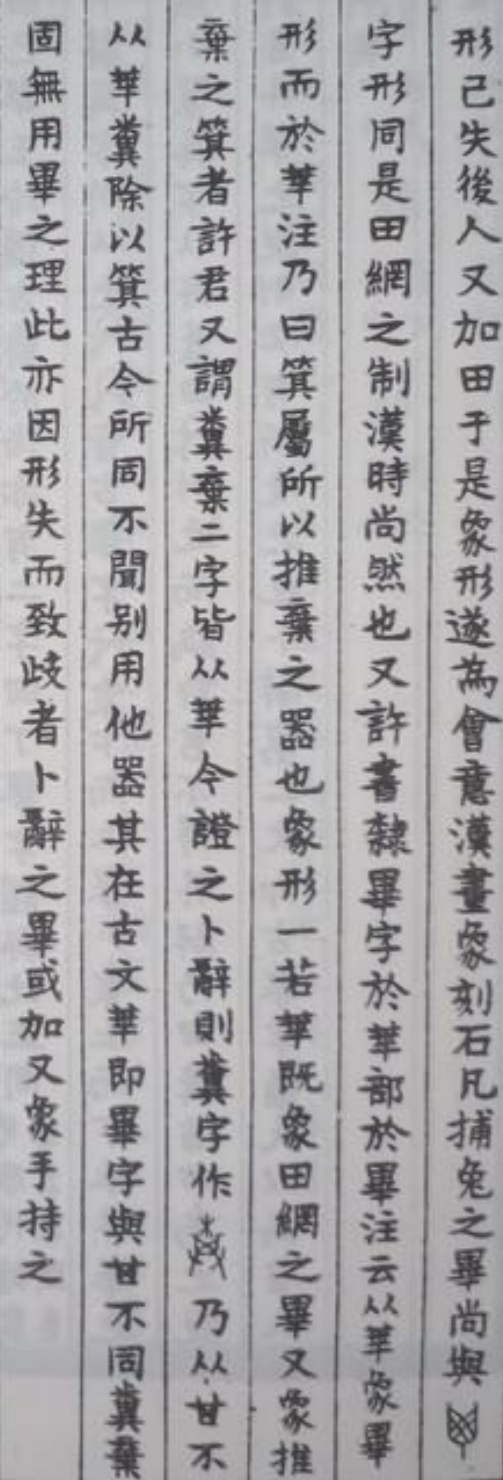 形已失後人又加田于是象形遂為會意漢畫象刻石凡捕兔之畢尚與
字形同是田網之制漢時尚然也又許書隸畢字於𠦒部於畢注云从𠦒象畢
形而於𠦒注乃曰箕屬所以推棄之器也象形一若𠦒既象田網之畢又象推
棄之箕者許君又謂糞棄二字皆从𠦒今證之卜辭則糞字作 乃从甘不
从𠦒糞除以箕古今所同不聞別用他器其在古文𠦒即畢字與甘不同糞棄
固無用畢之理此亦因形失而致歧者卜辭之畢或加又象手持之